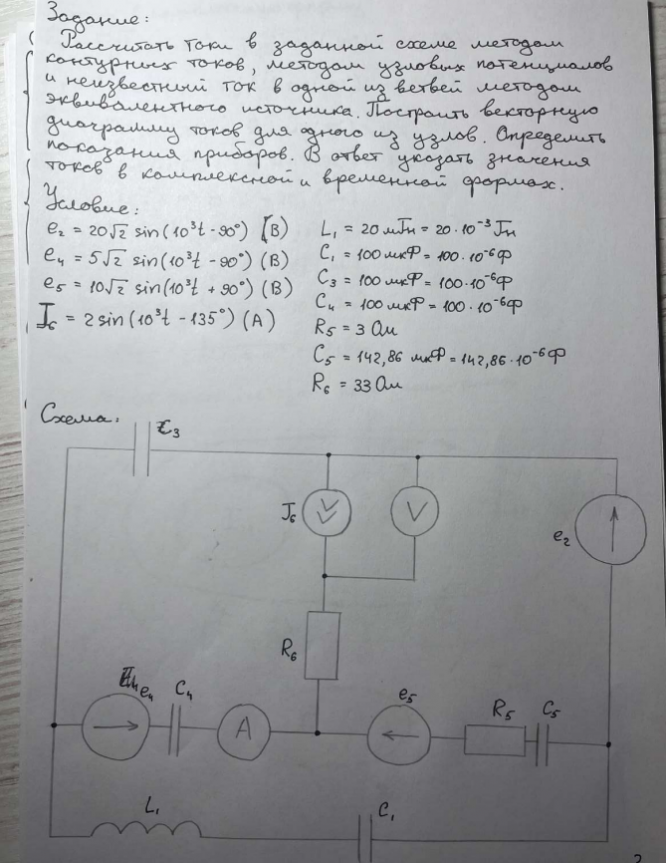 Задание:
Рассчитать токи в заданной схеме методом
контурных токов, методом узловых потенциалов
и неизвестный ток в одной из ветвей методом
эквивалентного источника. Построить векторную
диаграмму токов для одного из узлов. Определить
показания приборов. В ответ указать значения
токов в комплексной и временной формах.
Условие:
e₂ = 20√2 sin(10³t - 90°) (В)
e₄ = 5√2 sin(10³t - 90°) (В)
e₅ = 10√2 sin(10³t + 90°) (В)
J₆ = 2 sin(10³t - 135°) (А)
L₁ = 20 мГн = 20·10⁻³ Гн
C₁ = 100 мкФ = 100·10⁻⁶ Ф
C₃ = 100 мкФ = 100·10⁻⁶ Ф
C₄ = 100 мкФ = 100·10⁻⁶ Ф
R₅ = 3 Ом
C₅ = 142,86 мкФ = 142,86·10⁻⁶ Ф
R₆ = 33 Ом
Схема.
C₃
J₆
V
e₂
R₆
e₄
C₄
A
e₅
R₅
C₅
L₁
C₁